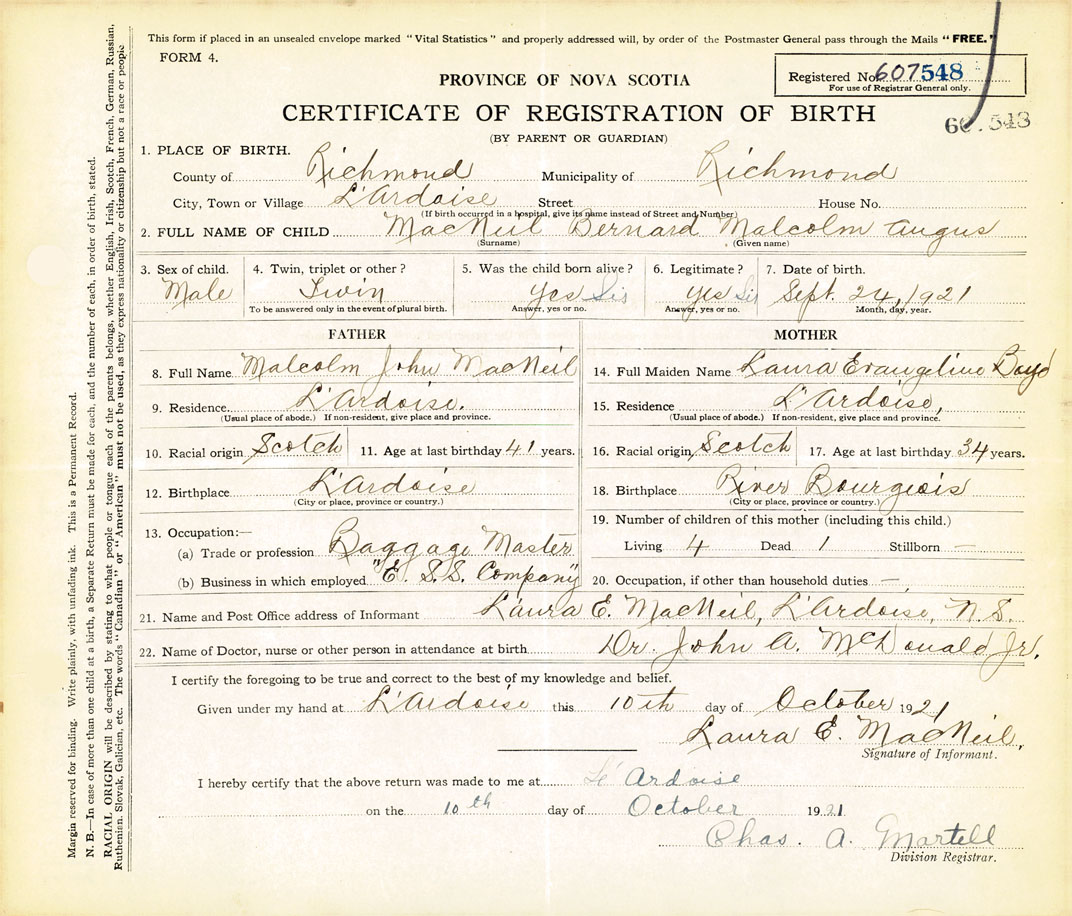 This form if placed in an unsealed envelope marked "Vital Statistics" and properly addressed will, by order of the Postmaster General pass through the Mails "FREE."
FORM 4.
PROVINCE OF NOVA SCOTIA
Registered No. 607548
For use of Registrar General only.
CERTIFICATE OF REGISTRATION OF BIRTH
(BY PARENT OR GUARDIAN)
1. PLACE OF BIRTH.
County of Richmond Municipality of Richmond
City, Town or Village L'Ardoise Street House No.
(If birth occurred in a hospital, give its name instead of Street and Number)
2. FULL NAME OF CHILD MacNeil Bernard Malcolm Angus
(Surname) (Given name)
3. Sex of child. 4. Twin, triplet or other? 5. Was the child born alive? 6. Legitimate? 7. Date of birth.
Male Twin Yes Yes Sept. 24, 1921
To be answered only in the event of plural birth. Answer, yes or no. Answer, yes or no. Month, day, year.
FATHER
8. Full Name Malcolm John MacNeil
9. Residence L'Ardoise.
(Usual place of abode.) If non-resident, give place and province.
10. Racial origin Scotch 11. Age at last birthday 41 years.
12. Birthplace L'Ardoise
(City or place, province or country.)
13. Occupation:—
(a) Trade or profession Baggage Master
(b) Business in which employed "E. S.S. Company"
MOTHER
14. Full Maiden Name Laura Evangeline Boyd
15. Residence L'Ardoise,
(Usual place of abode.) If non-resident, give place and province.
16. Racial origin Scotch 17. Age at last birthday 34 years.
18. Birthplace River Bourgeois
(City or place, province or country.)
19. Number of children of this mother (including this child.)
Living 4 Dead 1 Stillborn —
20. Occupation, if other than household duties —
21. Name and Post Office address of Informant Laura E. MacNeil, L'Ardoise, N.S.
22. Name of Doctor, nurse or other person in attendance at birth Dr. John A. McDonald Jr.
I certify the foregoing to be true and correct to the best of my knowledge and belief.
Given under my hand at L'Ardoise this 10th day of October 1921
Laura E. MacNeil,
Signature of Informant.
I hereby certify that the above return was made to me at L'Ardoise
on the 10th day of October 1921
Chas. A. Martell
Division Registrar.
Margin reserved for binding. Write plainly, with unfading ink. This is a Permanent Record.
N. B.—In case of more than one child at a birth, a Separate Return must be made for each, and the number of each, in order of birth, stated.
RACIAL ORIGIN will be described by stating to what people or tongue each of the parents belongs, whether English, Irish, Scotch, French, German, Russian,
Ruthenian, Slovak, Galician, etc. The words "Canadian" or "American" must not be used, as they express nationality or citizenship but not a race or people